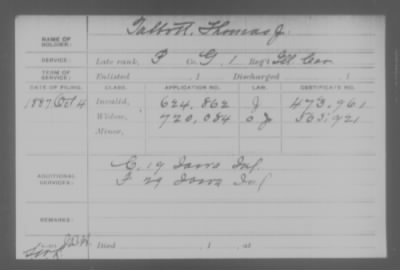 Talbott, Thomas J.
NAME OF HOLDER:
SERVICE: Late rank, P Co. G, 1 Reg't Ill Cav
TERM OF SERVICE: Enlisted , 1 Discharged , 1
DATE OF FILING. CLASS. APPLICATION NO. LAW. CERTIFICATE NO.
1887 Oct 4 Invalid, 624.862 J 473.961
Widow, 720,084 563.921
Minor,
C. 19 Iowa Inf.
ADDITIONAL SERVICES: F 29 Iowa Inf
REMARKS:
Died , 1 , at